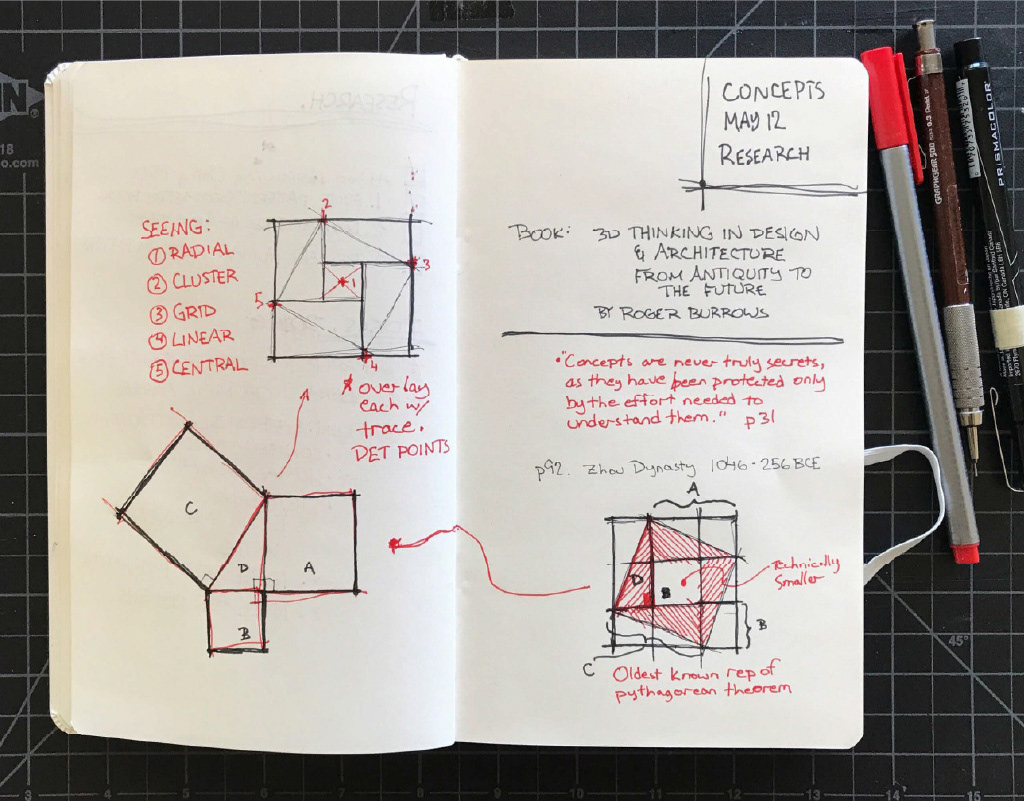 RESEARCH.
SEEING:
① RADIAL
② CLUSTER
③ GRID
④ LINEAR
⑤ CENTRAL
2
3
1
5
4
* overlay
each w/
trace.
DET POINTS
C
D
A
B
CONCEPTS
MAY 12
RESEARCH
BOOK: 3D THINKING IN DESIGN
& ARCHITECTURE
FROM ANTIQUITY TO
THE FUTURE
BY ROGER BURROWS
•"Concepts are never truly secrets,
as they have been protected only
by the effort needed to
understand them." p31
p92. Zhou Dynasty 1046-256 BCE
A
D
B
Technically
Smaller
B
C
Oldest known rep of
pythagorean theorem
GRAPHGEAR 500 0.5 Pentel
PRISMACOLOR
IN
18
o.com
45°
3
4
5
6
7
8
9
10
11
12
13
14
15